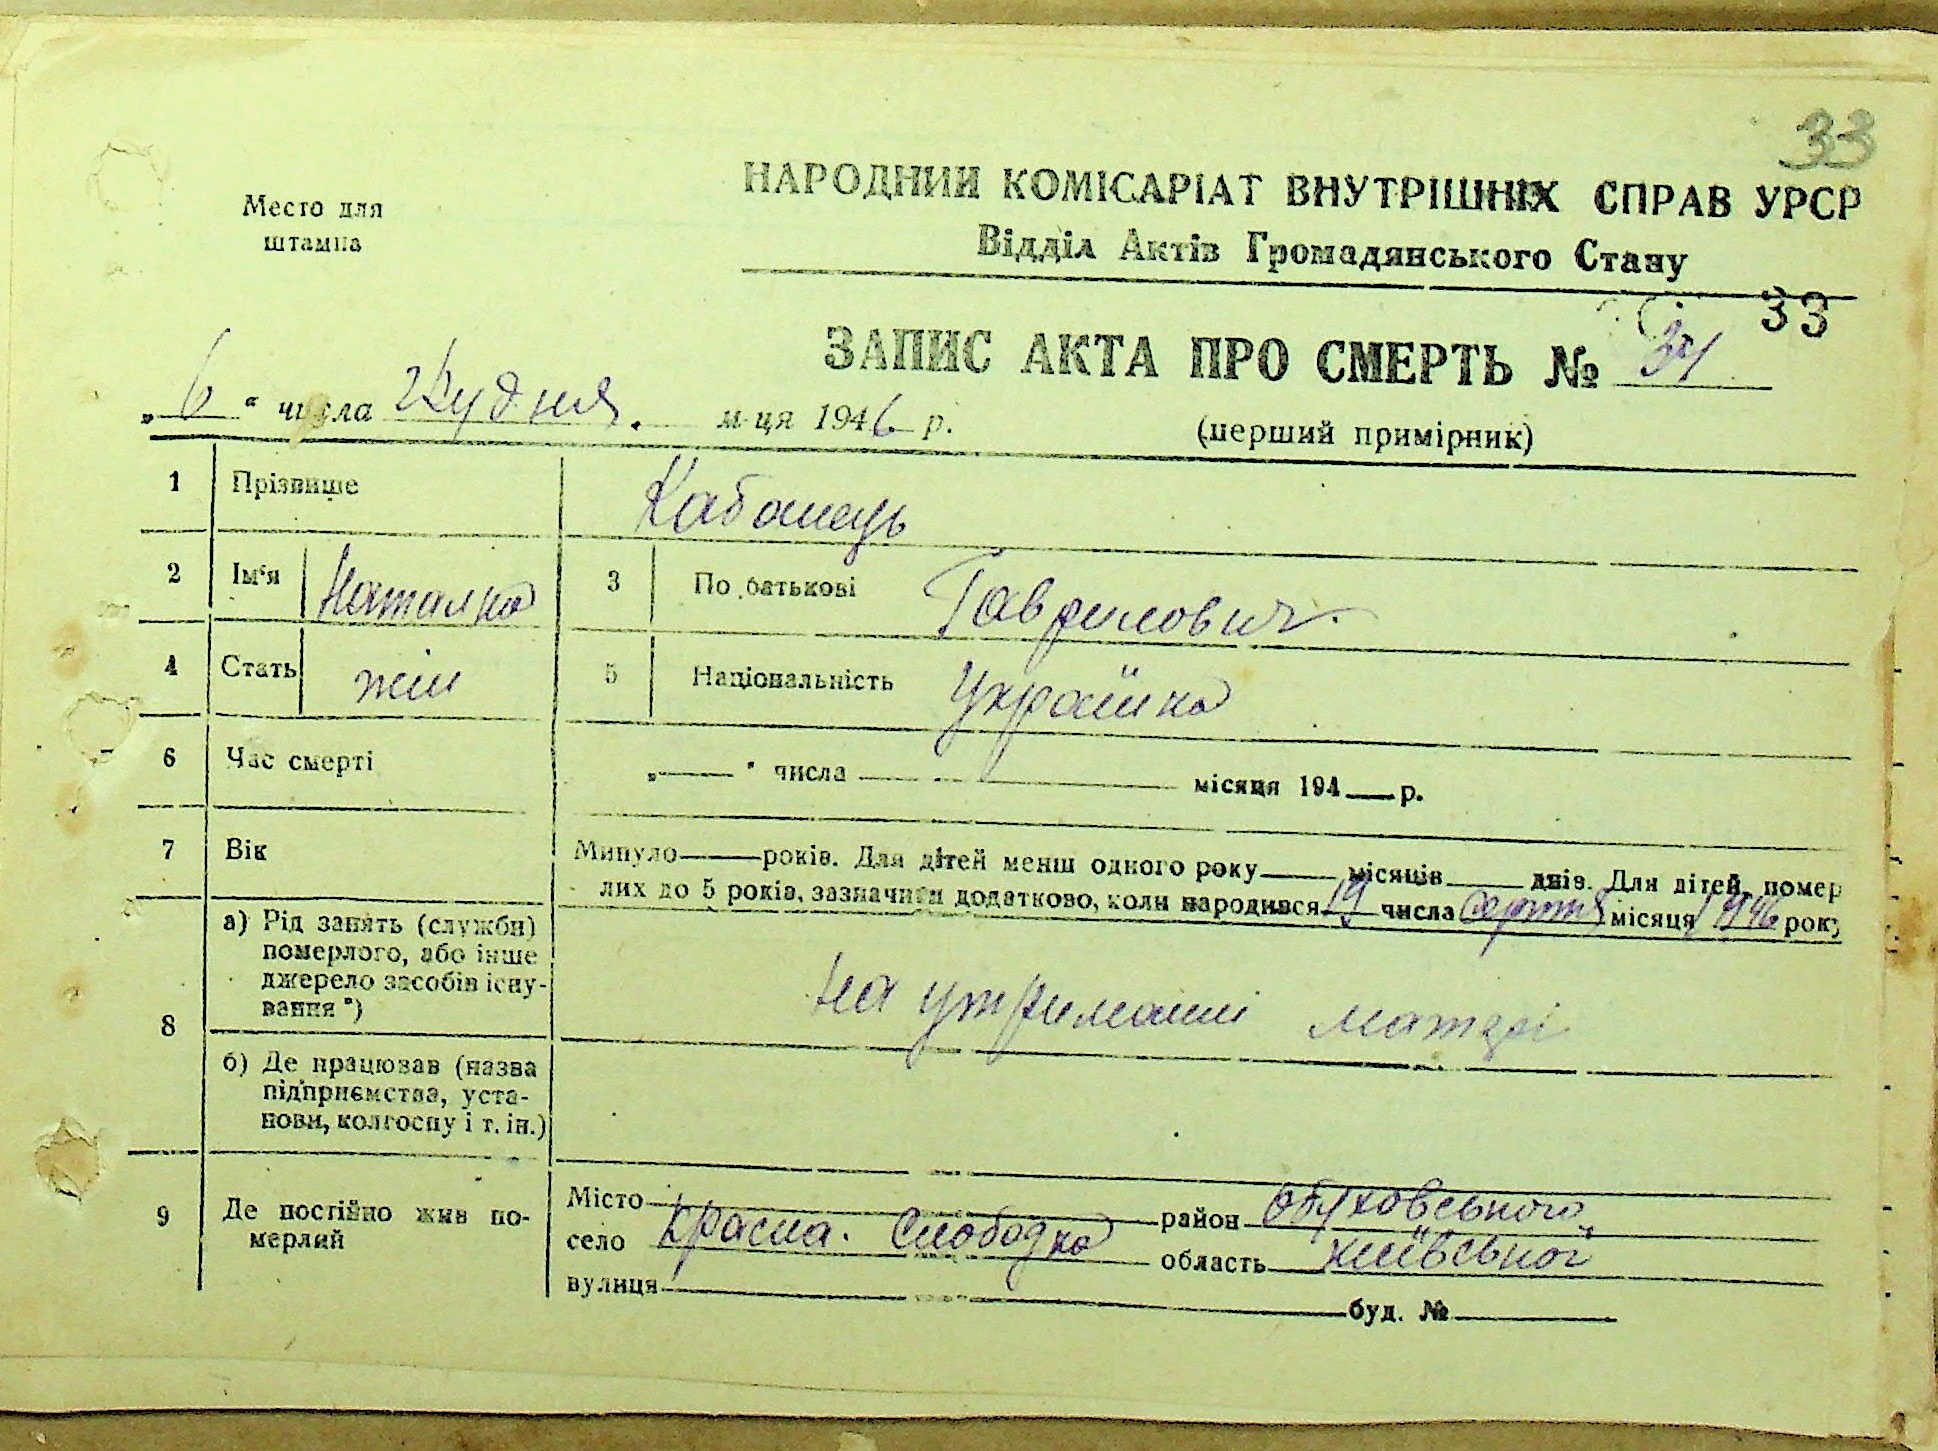 33
Место для
штампа
НАРОДНИЙ КОМІСАРІАТ ВНУТРІШНІХ СПРАВ УРСР
Відділ Актів Громадянського Стану
33
ЗАПИС АКТА ПРО СМЕРТЬ № 34
„ 6 “ числа Грудня. м-ця 1946 р.
(перший примірник)
1 Прізвище Кабанець
2 Ім‘я Наталка 3 По батькові Гаврилович.
4 Стать жін 5 Національність Українка
6 Час смерті „ “ числа місяця 194 р.
7 Вік Минуло років. Для дітей менш одного року місяців днів. Для дітей, помер
лих до 5 років, зазначити додатково, коли народився 19 числа Серпня місяця 1946 року
8 а) Рід занять (служби)
померлого, або інше
джерело засобів існу-
вання *)
на утриманні матері
б) Де працював (назва
підприємства, уста-
нови, колгоспу і т. ін.)
9 Де постійно жив по-
мерлий
Місто район Обуховського
село Красна. Слободка область Київської
вулиця буд. №